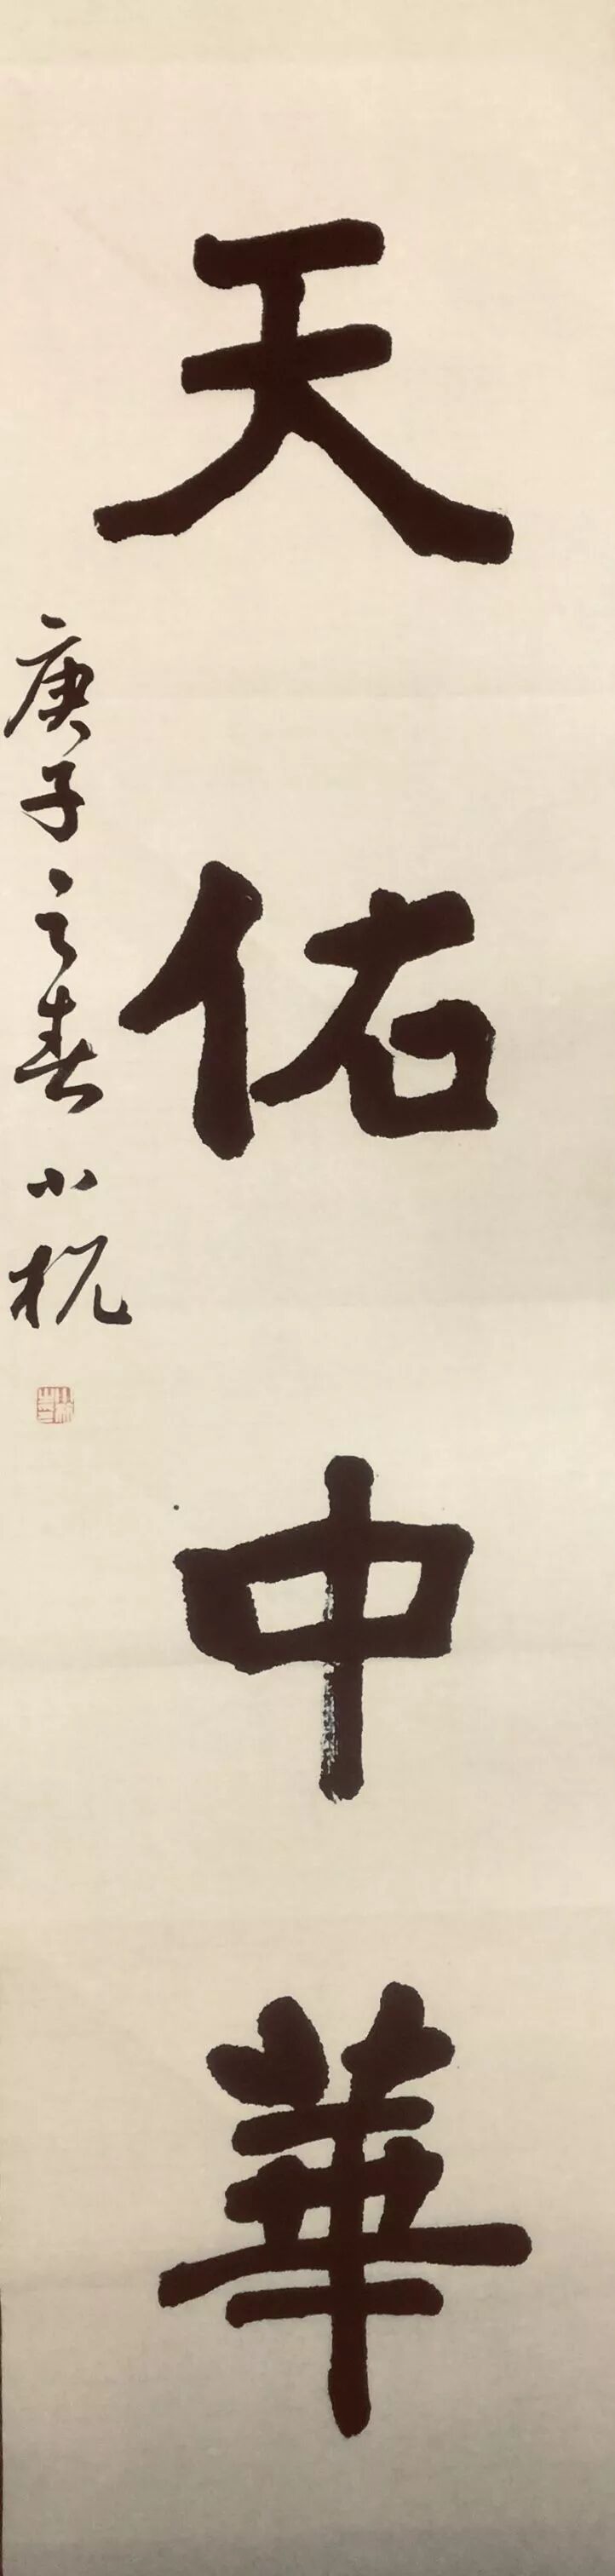 天佑中華
庚子之春 小杋